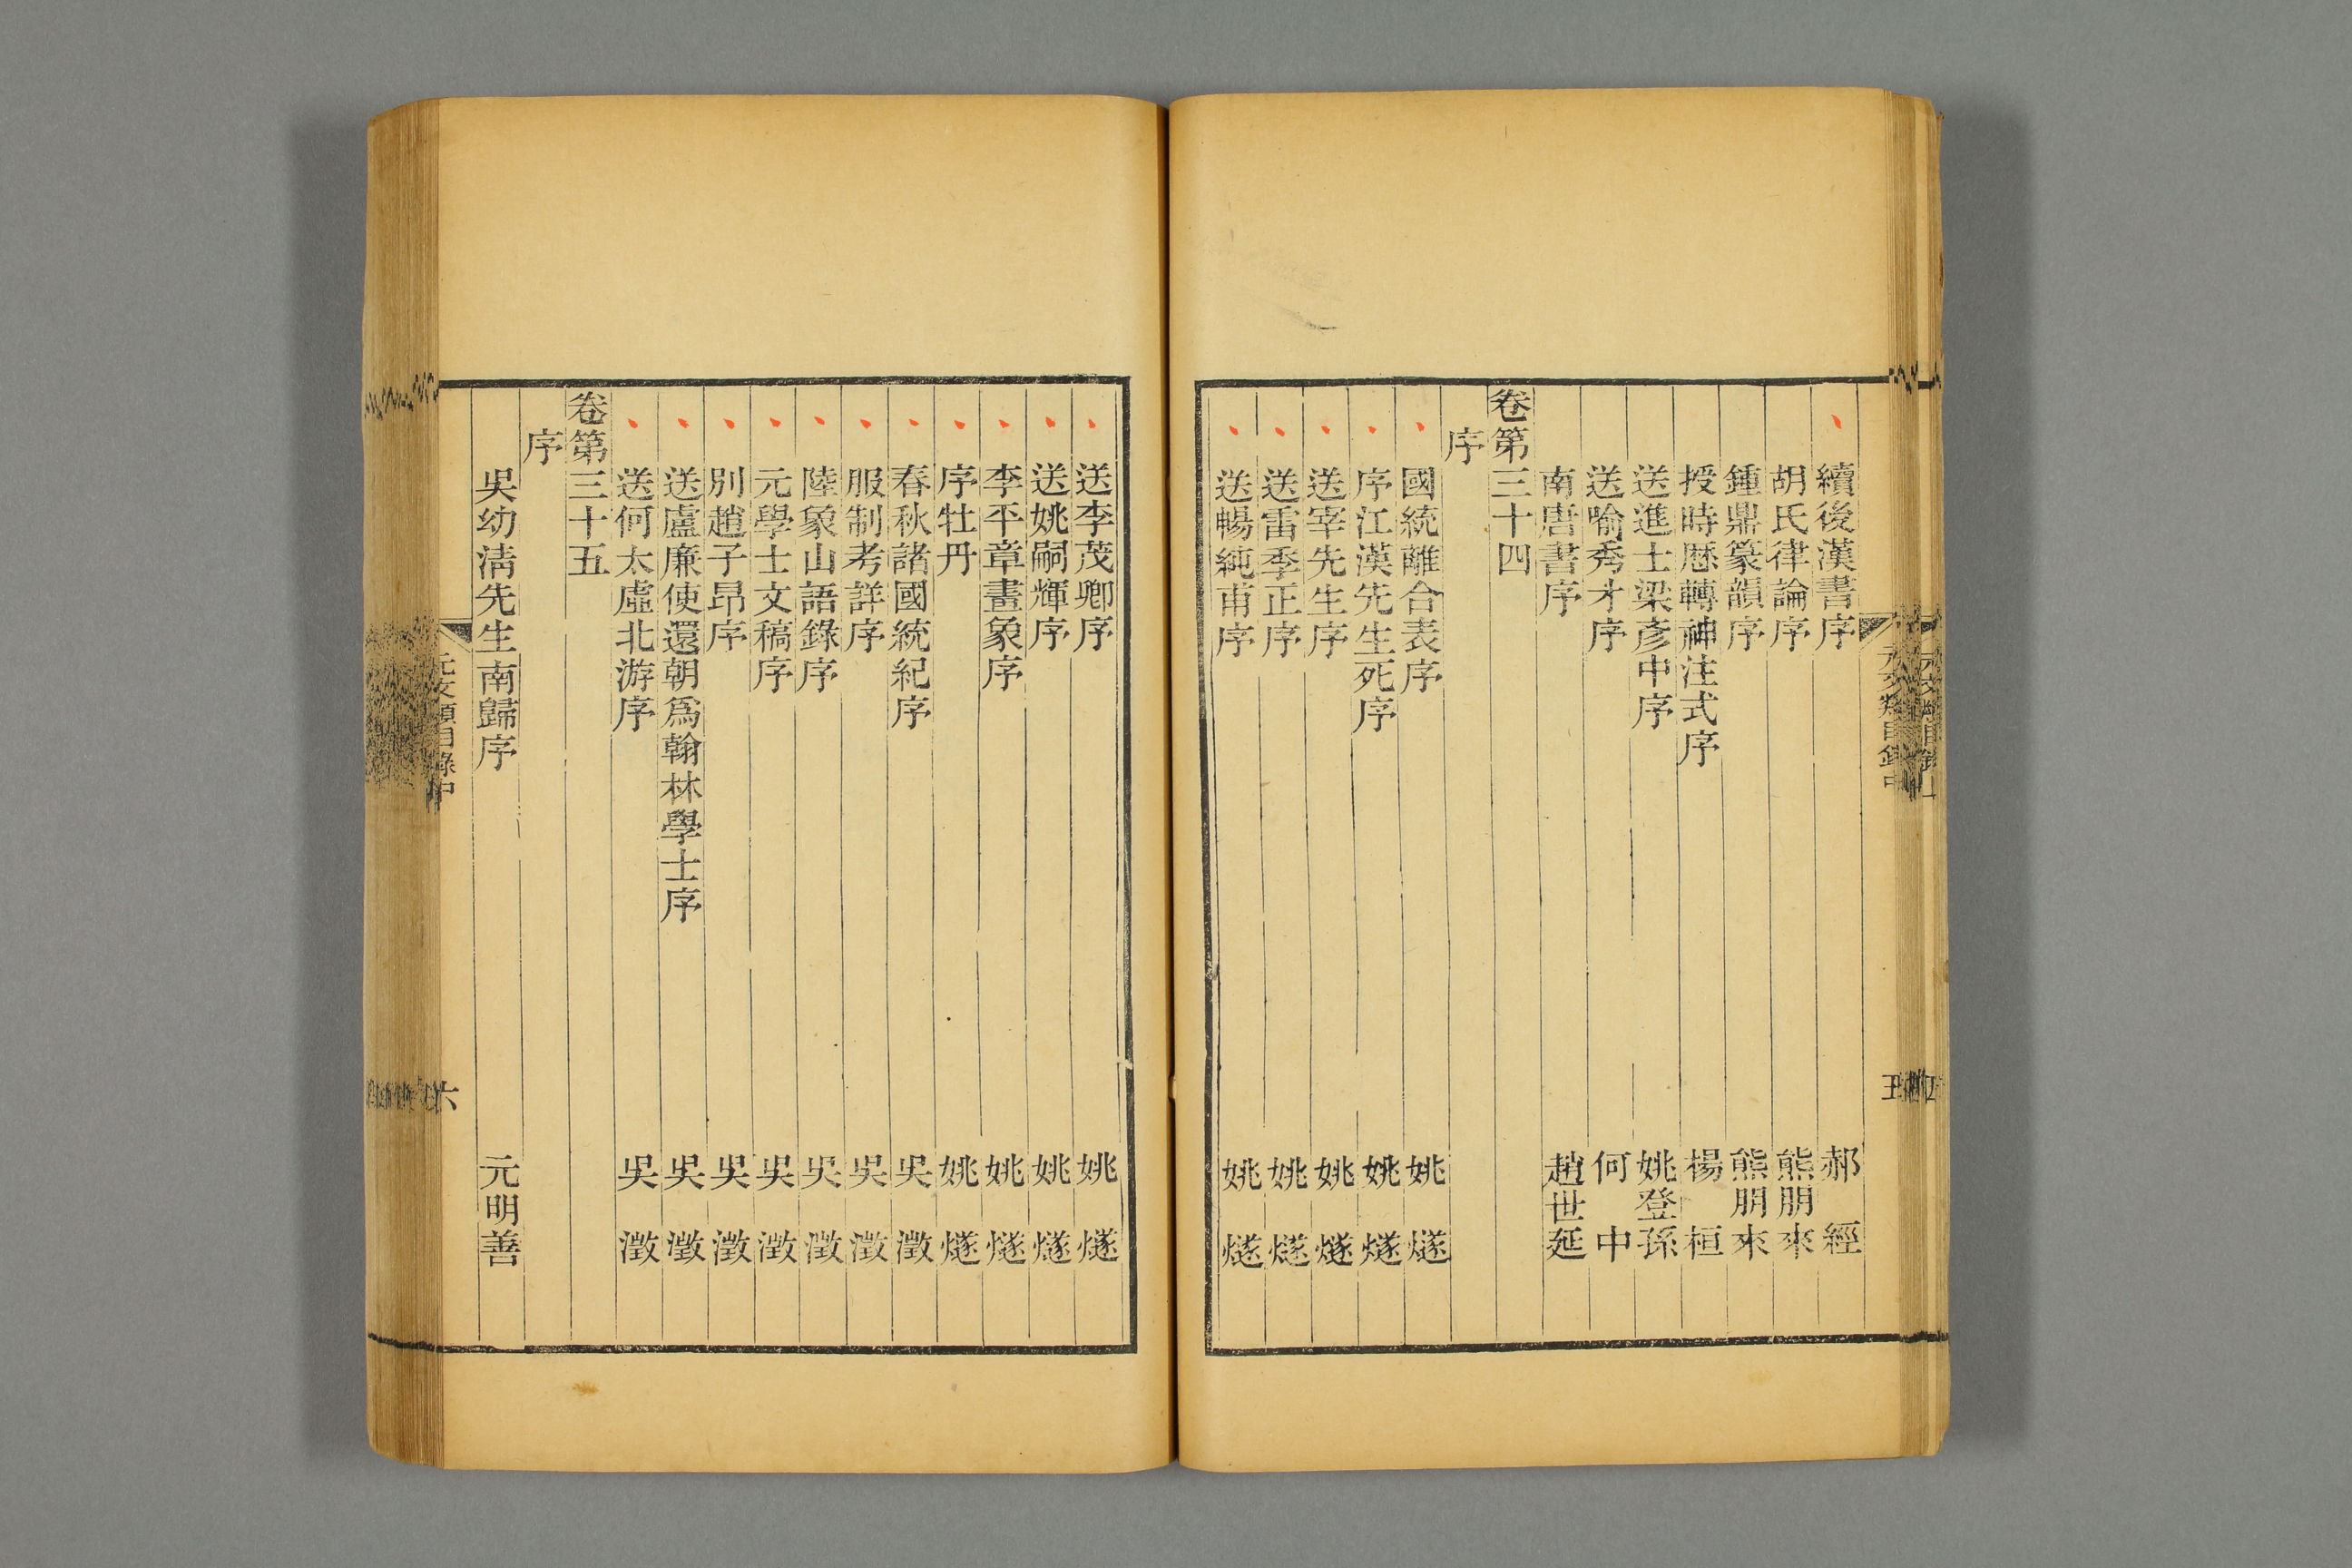 續後漢書序 郝經
胡氏律論序 熊朋來
鍾鼎篆韻序 熊朋來
授時厯轉神注式序 楊桓
送進士梁彥中序 姚登孫
送喻秀才序 何中
南唐書序 趙世延
卷第三十四
序
國統離合表序 姚燧
序江漢先生死序 姚燧
送宰先生序 姚燧
送雷季正序 姚燧
送暢純甫序 姚燧
送李茂卿序 姚燧
送姚嗣輝序 姚燧
李平章畫象序 姚燧
序牡丹 姚燧
春秋諸國統紀序 吳澂
服制考詳序 吳澂
陸象山語錄序 吳澂
元學士文稿序 吳澂
別趙子昂序 吳澂
送盧廉使還朝爲翰林學士序 吳澂
送何太虛北游序 吳澂
卷第三十五
序
吳幼淸先生南歸序 元明善
元文類目錄中
六